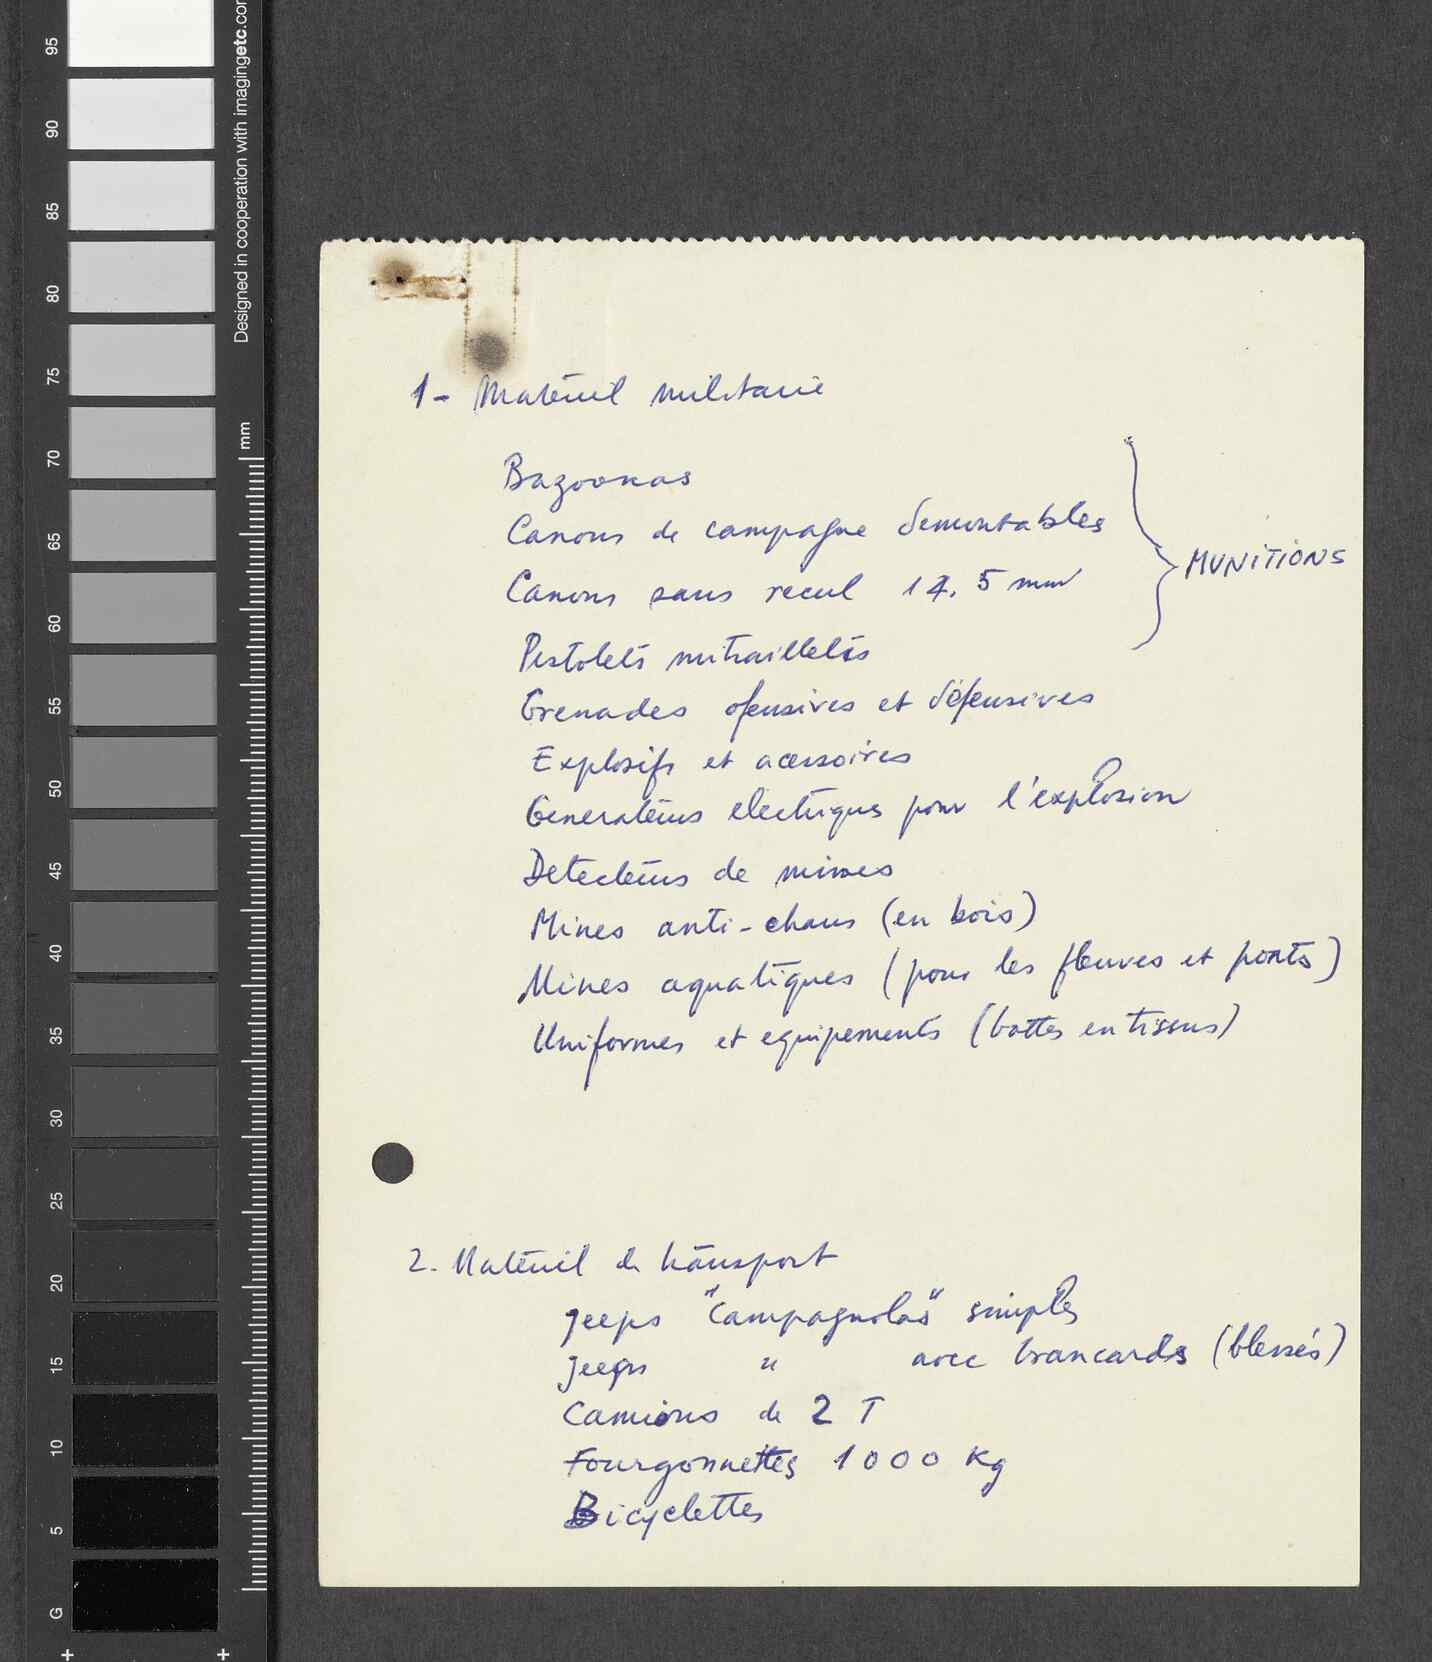 95
90
85
80
75
70
65
60
55
50
45
40
35
30
25
20
15
10
5
G
Designed in cooperation with imagingetc.com
mm
1- Matériel militaire
Bazookas
Canons de campagne demontables
Canons sans recul 14.5 mm
Pistolets mitrailletes
MUNITIONS
Grenades ofensives et défensives
Explosifs et acessoires
Generateurs electriques pour l'explosion
Detecteurs de mines
Mines anti-chars (en bois)
Mines aquatiques (pour les fleuves et ponts)
Uniformes et equipements (bottes en tissus)
2. Matériel de transport
Jeeps "Campagnolas" simples
Jeeps " avec brancards (blessés)
Camions de 2 T
Fourgonnettes 1000 Kg
Bicyclettes